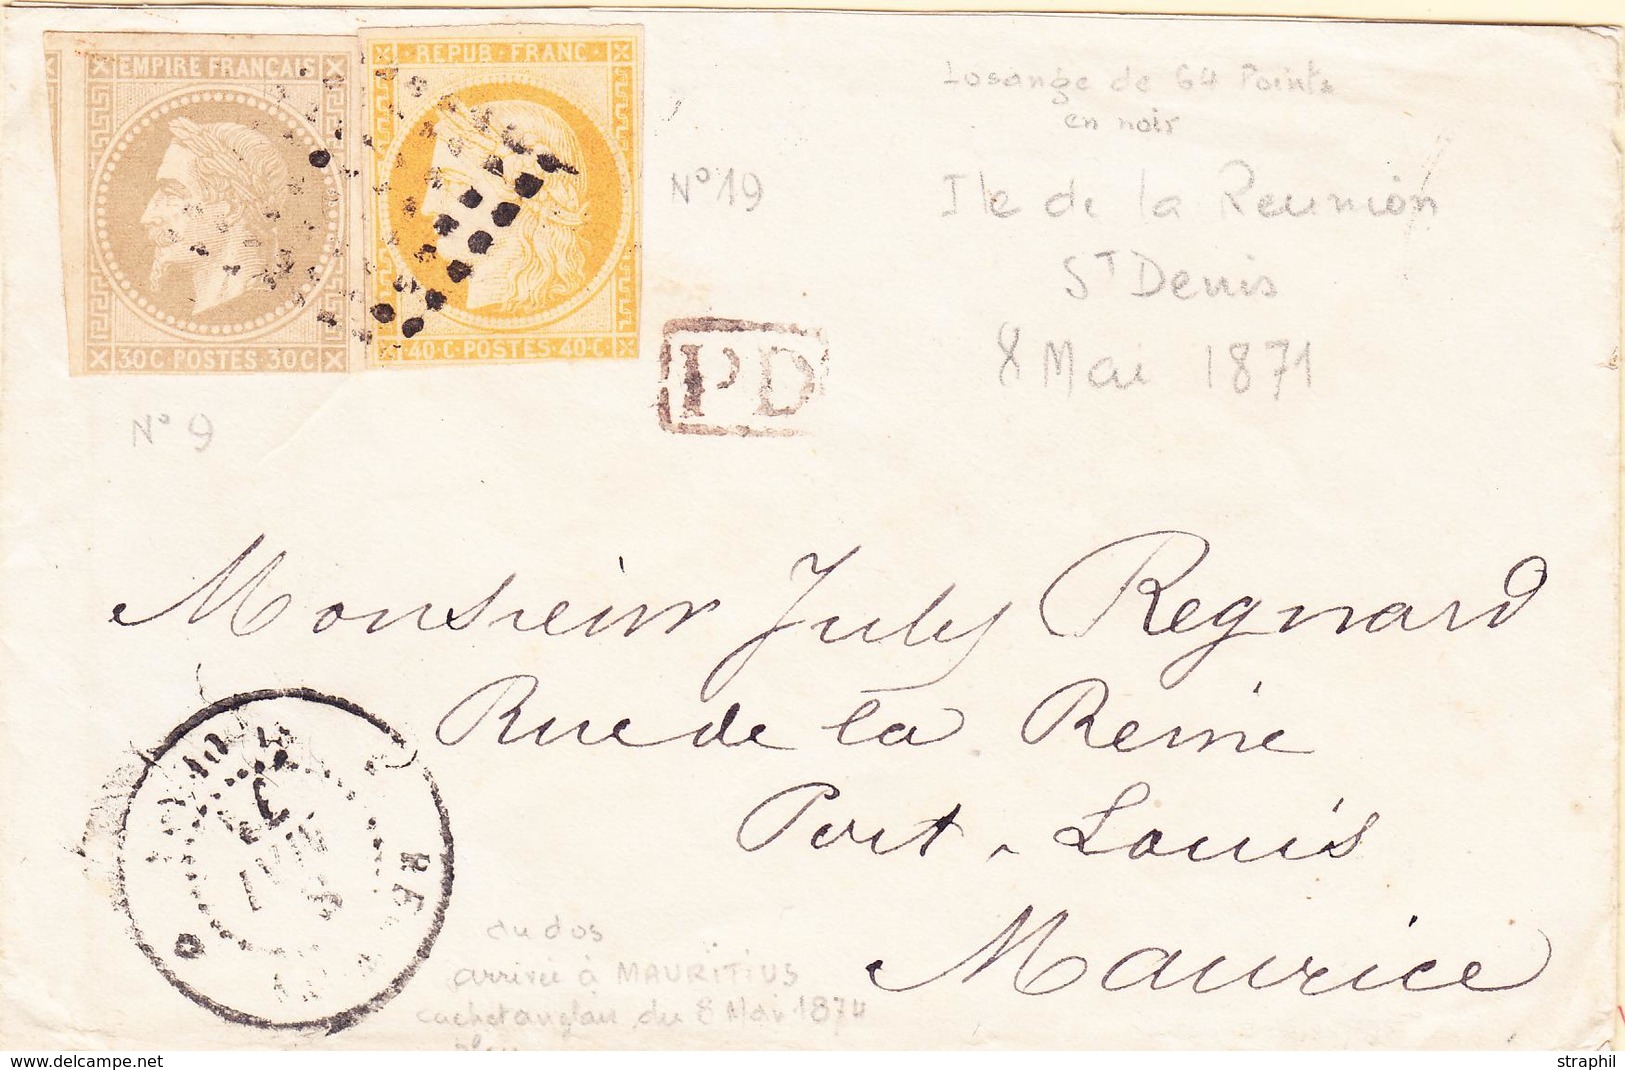 EMPIRE FRANCAIS
30C · POSTES · 30C
REPUB · FRANC ·
40 · C · POSTES · 40 · C
Losange de 64 Points
en noir
N° 19
Ile de la Reunion
St Denis
8 Mai 1871
PD
N° 9
Monsieur July Regnard
Rue de la Reine
Port-Louis
Maurice
au dos
arrivée à MAURITIUS
cachet anglais du 8 Mai 1874
straphil